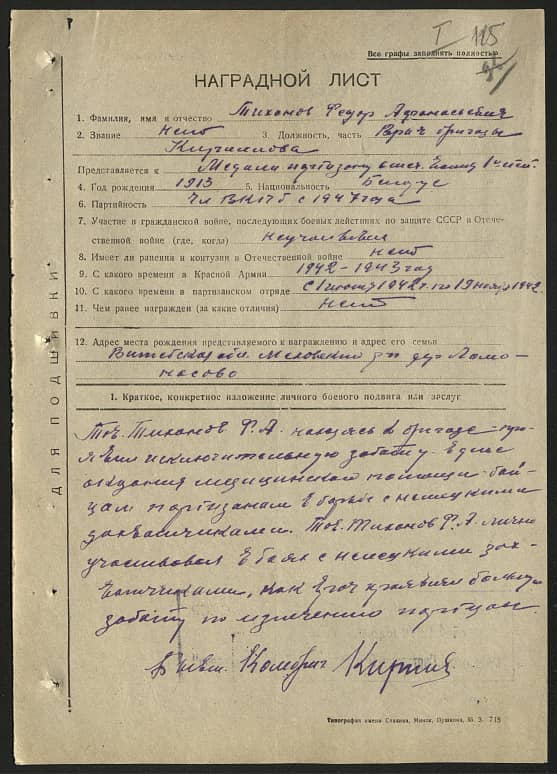 I 115
Все графы заполнять полностью
НАГРАДНОЙ ЛИСТ
1. Фамилия, имя и отчество Тихонов Федор Афанасьевич
2. Звание нет 3. Должность, часть Врач бригады
Кириллова
Представляется к Медали партизану отеч. войны 1 степ.
4. Год рождения 1913 5. Национальность Белорус
6. Партийность Чл ВКПб с 1947 года
7. Участие в гражданской войне, последующих боевых действиях по защите СССР и Отече-
ственной войне (где, когда) неучаствовал
8. Имеет ли ранения и контузии в Отечественной войне нет
9. С какого времени в Красной Армии 1942-1943 год
10. С какого времени в партизанском отряде 1942 г. по 19 ноябр 1942
11. Чем ранее награжден (за какие отличия) нет
12. Адрес места рождения представляемого к награждению и адрес его семьи
Витебская обл. р-н дер. Ломо-
носово
I. Краткое, конкретное изложение личного боевого подвига или заслуг
Тов. Тихонов Ф. А. находясь в бригаде про-
явил исключительную заботу в деле
оказания медицинской помощи бой-
цам партизанам в борьбе с немецкими
захватчиками. Тов. Тихонов Ф. А. лично
участвовал в боях с немецкими зах-
ватчиками, проявил большую
заботу по излечению партизан.
Бывш. Комбриг
ДЛЯ ПОДШИВКИ
Типография имени Сталина, Минск, Пушкина, 55 З. 715